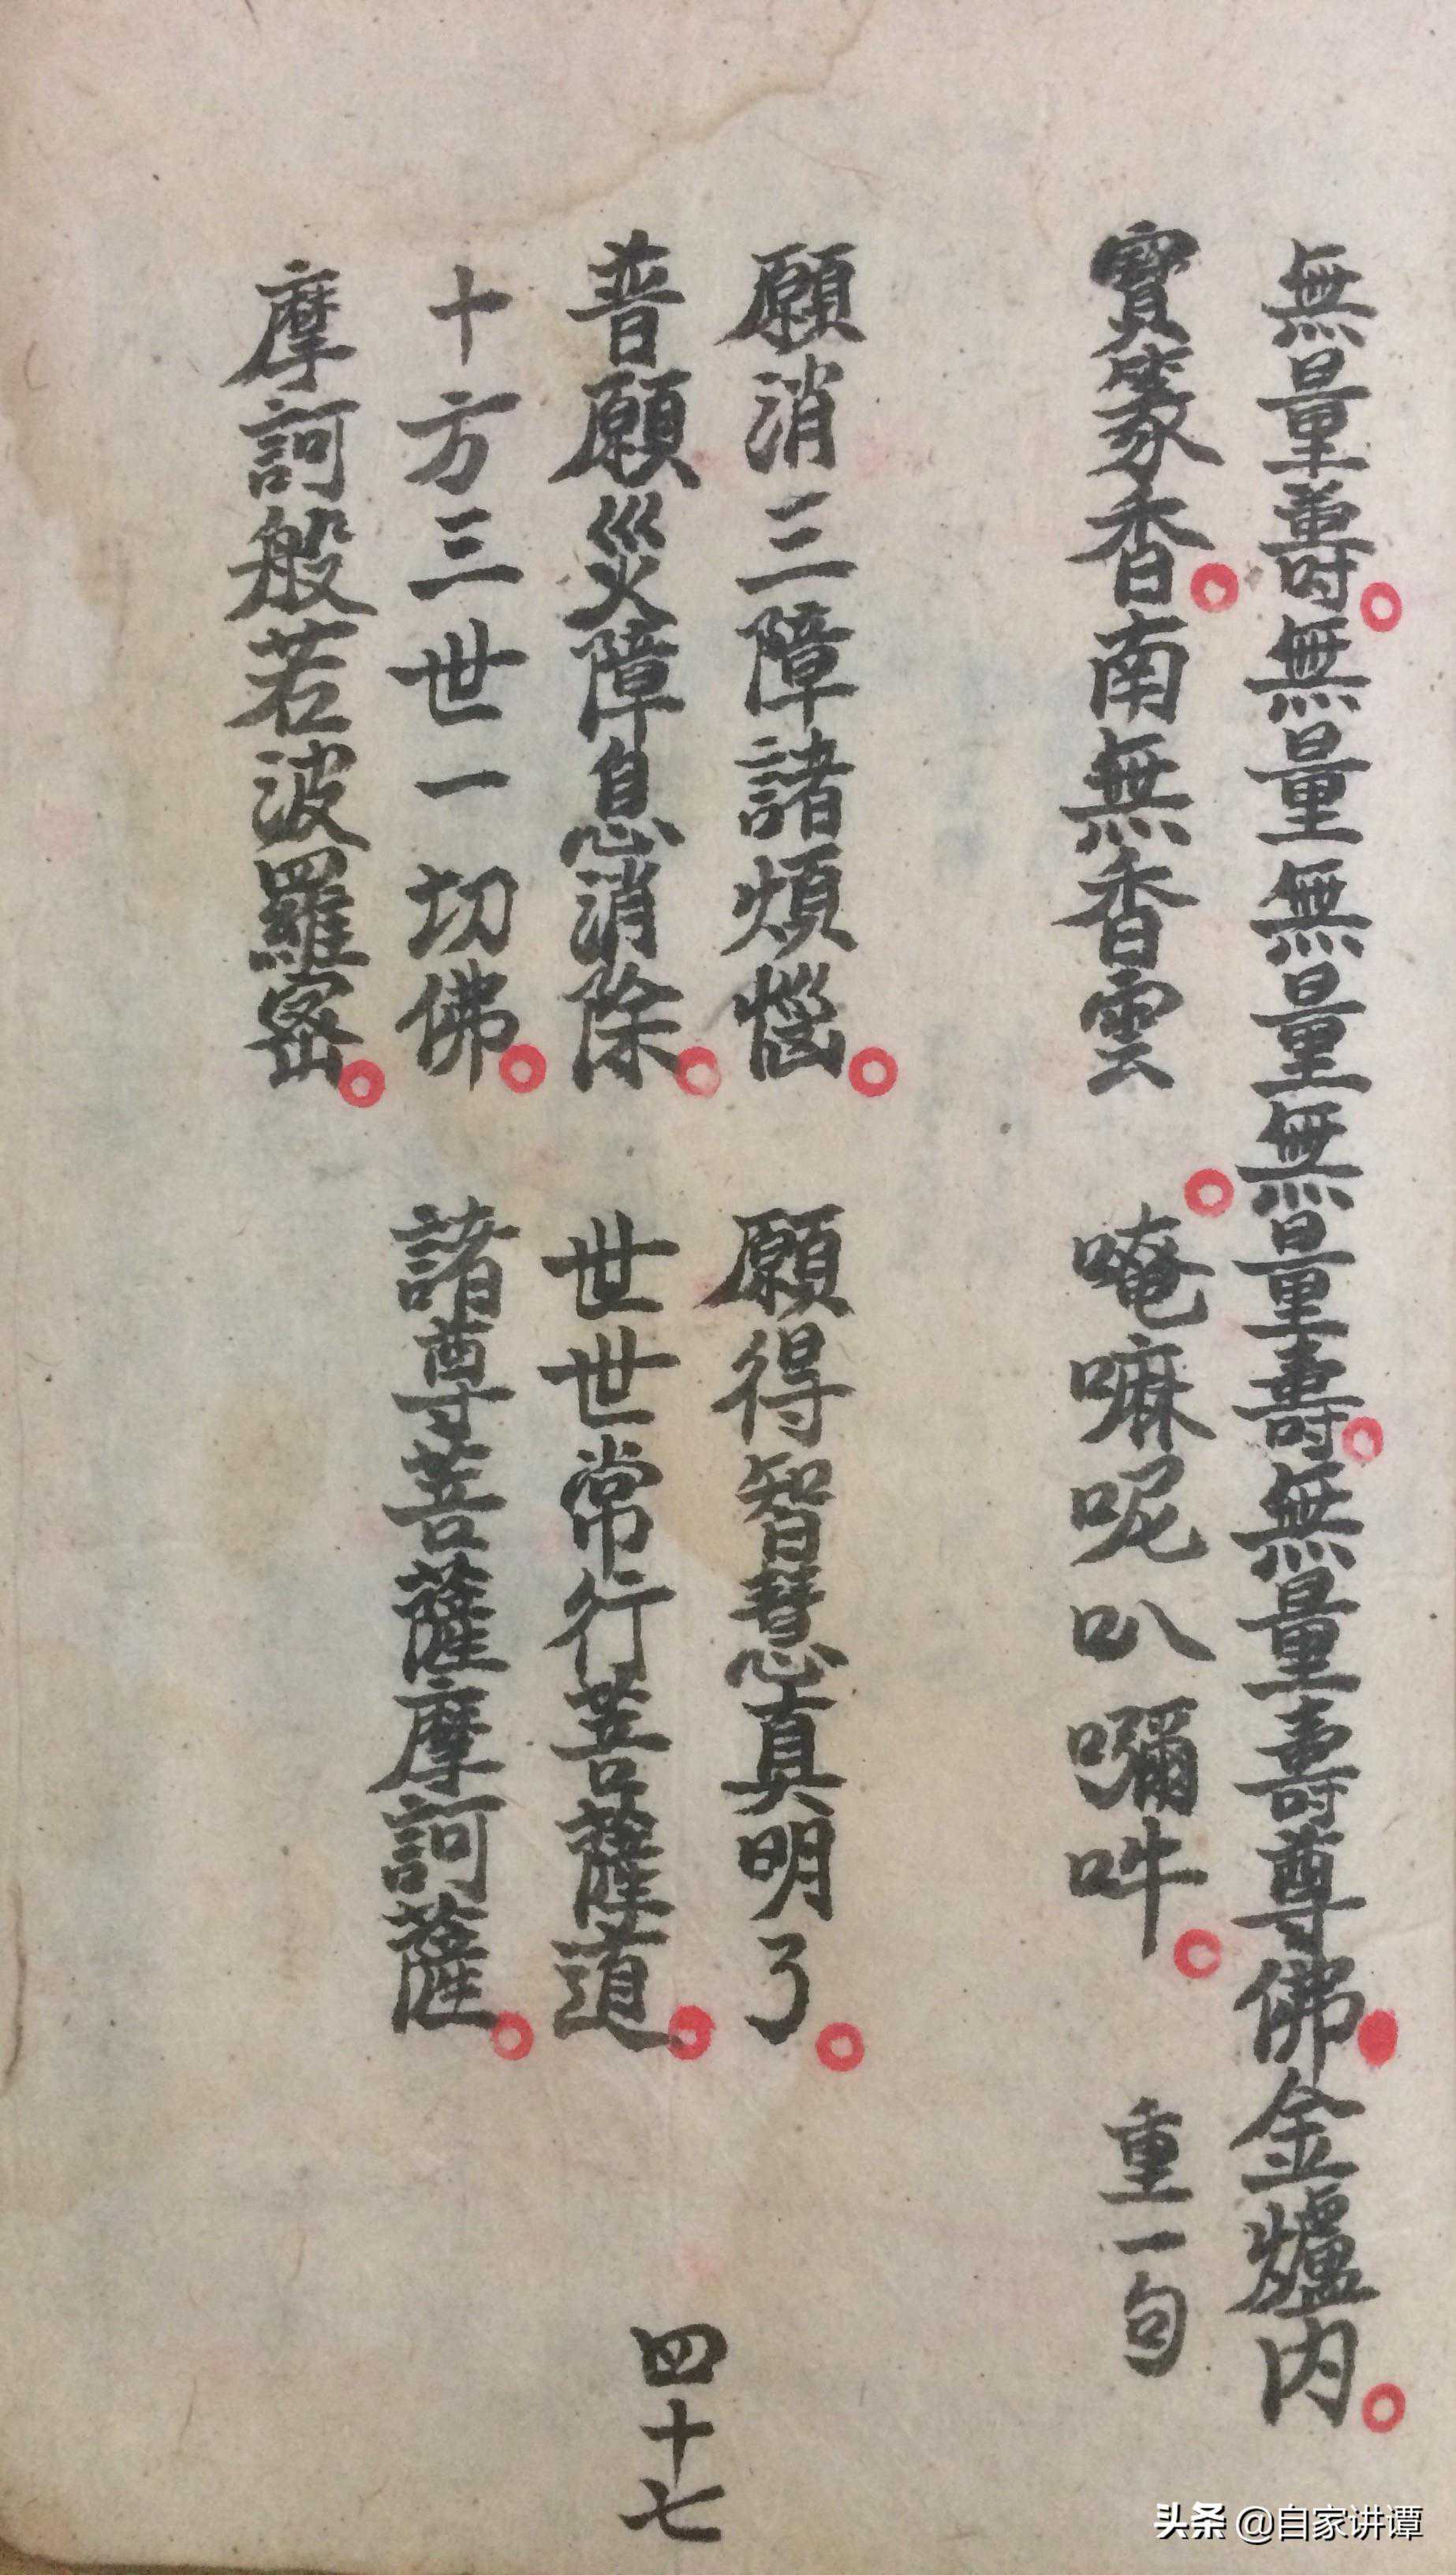 無量壽。無量無量無量壽。無量壽尊佛金爐内。
寳篆香。南無香雲。唵嘛呢叭嘓吽。重一句
願消三障諸煩惱。願得智慧真明了。
普願災障息消除。世世常行菩薩道。
十方三世一切佛。諸尊菩薩摩訶薩。
摩訶般若波羅宻。
四十七
头条 @自家讲谭